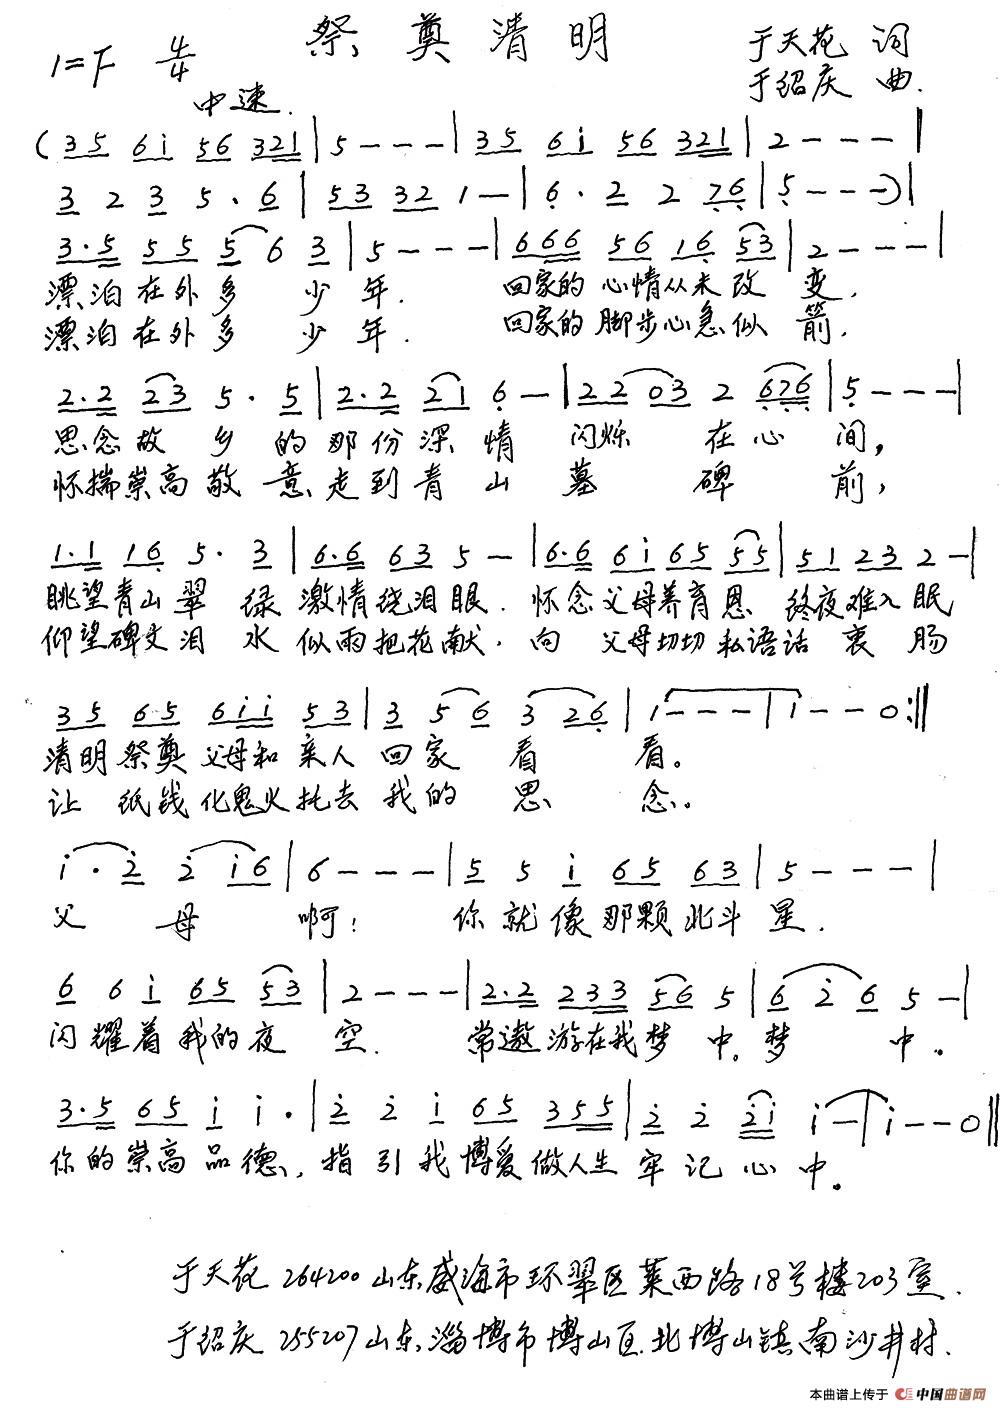 祭奠清明
1=F 4/4
于天花 词
于绍庆 曲.
中速.
(35 6i 56 321|5---|35 6i 56 321|2---|
3 2 3 5·6|53 32 1-|6·2 2 76|5---)|
3·5 55 5 6 3|5---|666 56 16 53|2---|
漂泊在外多 少 年. 回家的 心情从未 改 变.
漂泊在外多 少 年. 回家的 脚步心急似 箭.
2·2 23 5·5|2·2 21 6-|22 03 2 676|5---|
思念故 乡 的那份深 情 闪烁 在心 间,
怀揣崇高敬 意走到青 山 墓 碑 前,
1·1 16 5·3|6·6 63 5-|6·6 6i 65 55|51 23 2-|
眺望青山翠 绿 激情绕泪眼. 怀念父母养育恩 终夜难入眠
仰望碑文泪 水 似雨把花献. 向 父母切切私语话衷肠
35 65 6ii 53|3 5 6 3 26|1---|i--0:||
清明祭奠 父母和 亲人 回家 看 看。
让 纸钱化鬼火托去 我的 思 念。
i·2 2 i6|6---|5 5 i 65 63|5---|
父 母 啊! 你就像那颗北斗 星.
6 6 i 65 53|2---|2·2 233 56 5|6 2 6 5-|
闪耀着我的夜 空. 常遨游在我梦 中。梦 中。
3·5 65 i i·|2 2 i 65 355|2 2 2i i-|i--0||
你的崇高品德, 指引我博爱做人生 牢记心中。
于天花 264200 山东威海市环翠区莱西路18号楼203室.
于绍庆 255207 山东淄博市博山区北博山镇南沙井村.
本曲谱上传于 中国曲谱网